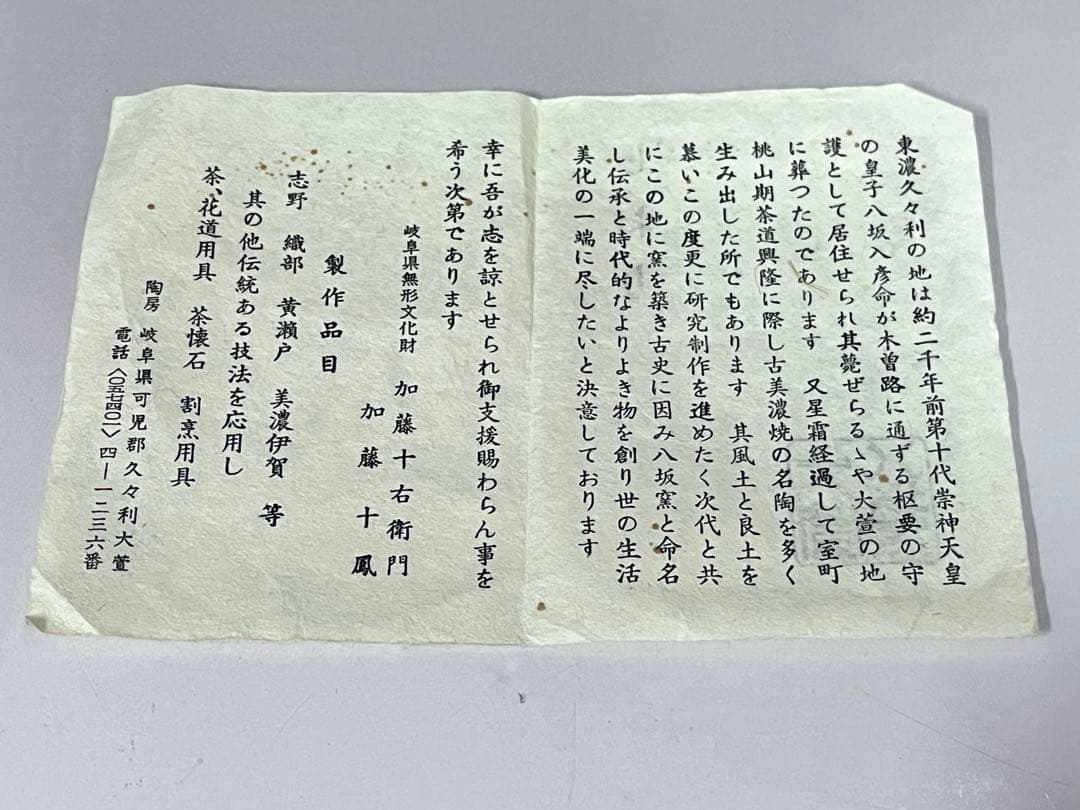 東濃久々利の地は約二千年前第十代崇神天皇
の皇子八坂入彦命が木曽路に通ずる枢要の守
護として居住せられ其薨ぜらるゝや大萱の地
に葬つたのであります　又星霜経過して室町
桃山期茶道興隆に際し古美濃焼の名陶を多く
生み出した所でもあります　其風土と良土を
慕いこの度更に研究制作を進めたく次代と共
にこの地に窯を築き古史に因み八坂窯と命名
し伝承と時代的なよりよき物を創り世の生活
美化の一端に尽したいと決意しております
幸に吾が志を諒とせられ御支援賜わらん事を
希う次第であります
岐阜県無形文化財　加藤十右衛門
加藤十鳳
製作品目
志野　織部　黄瀬戸　美濃伊賀　等
其の他伝統ある技法を応用し
茶、花道用具　茶懐石　割烹用具
陶房　岐阜県可児郡久々利大萱
電話〈〇五七四〇〉四―一二三六番